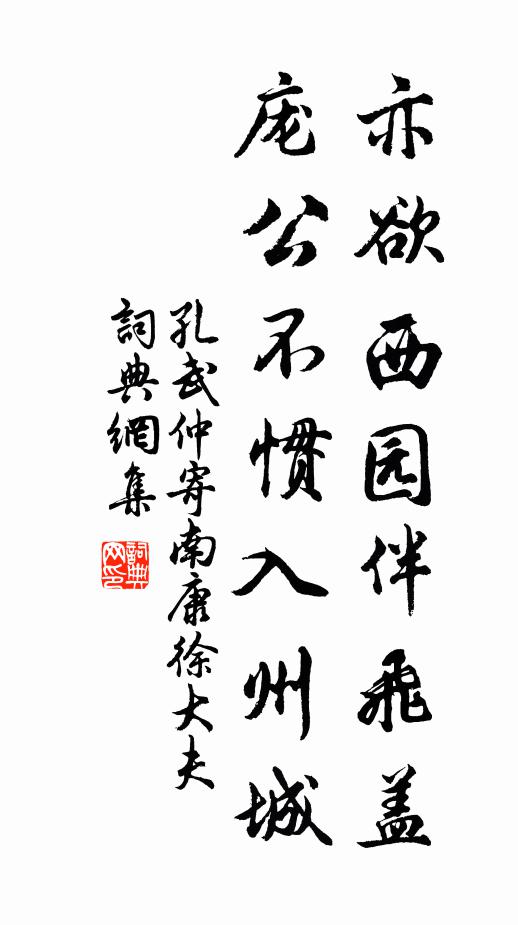 亦欲西园伴飛盖
庞公不惯入州城
孔武仲寄南康徐大夫
詞典網集
詞典网印